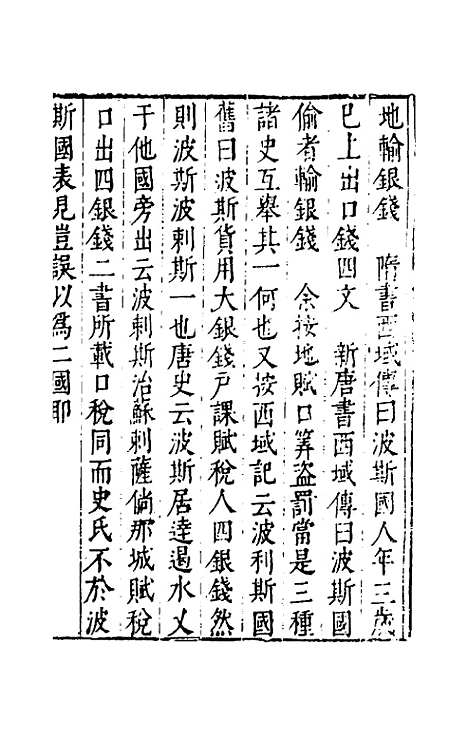 地輸銀錢　隋書西域傳曰波斯國人年三歲
巳上出口錢四文　新唐書西域傳曰波斯國
偷者輸銀錢　余按地賦口筭盜罰當是三種
諸史互舉其一何也又按西域記云波利斯國
舊曰波斯貨用大銀錢戸課賦稅人四銀錢然
則波斯波剌斯一也唐史云波斯居達遏水又
于他國旁出云波剌斯治蘇剌薩倘那城賦稅
口出四銀錢二書所載口稅同而史氏不於波
斯國表見豈誤以爲二國耶